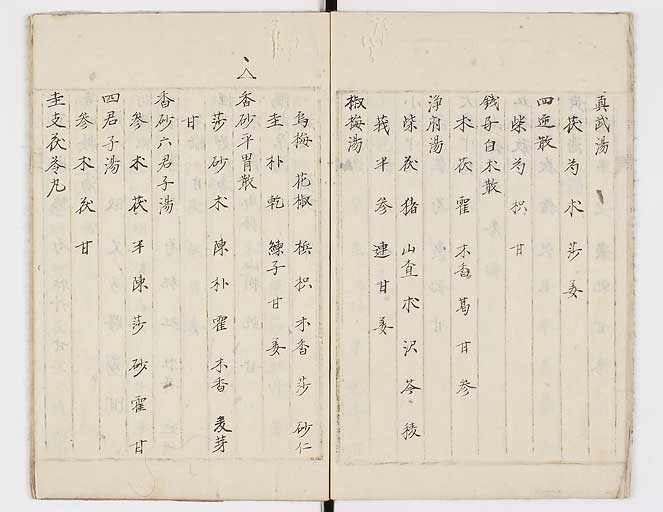 真武湯
茯芍朮莎姜
四逆散
柴芍枳甘
錢氏白朮散
朮茯霍木香葛甘參
浄府湯
柴茯猪山査朮沢芩稜
莪半參連甘姜
椒梅湯
烏梅花椒梹枳木香莎砂仁
圭朴乾練子甘姜
香砂平胃散
莎砂朮陳朴霍木香麦芽
甘
香砂六君子湯
參朮茯半陳莎砂霍甘
四君子湯
參朮茯甘
圭支茯苓丸